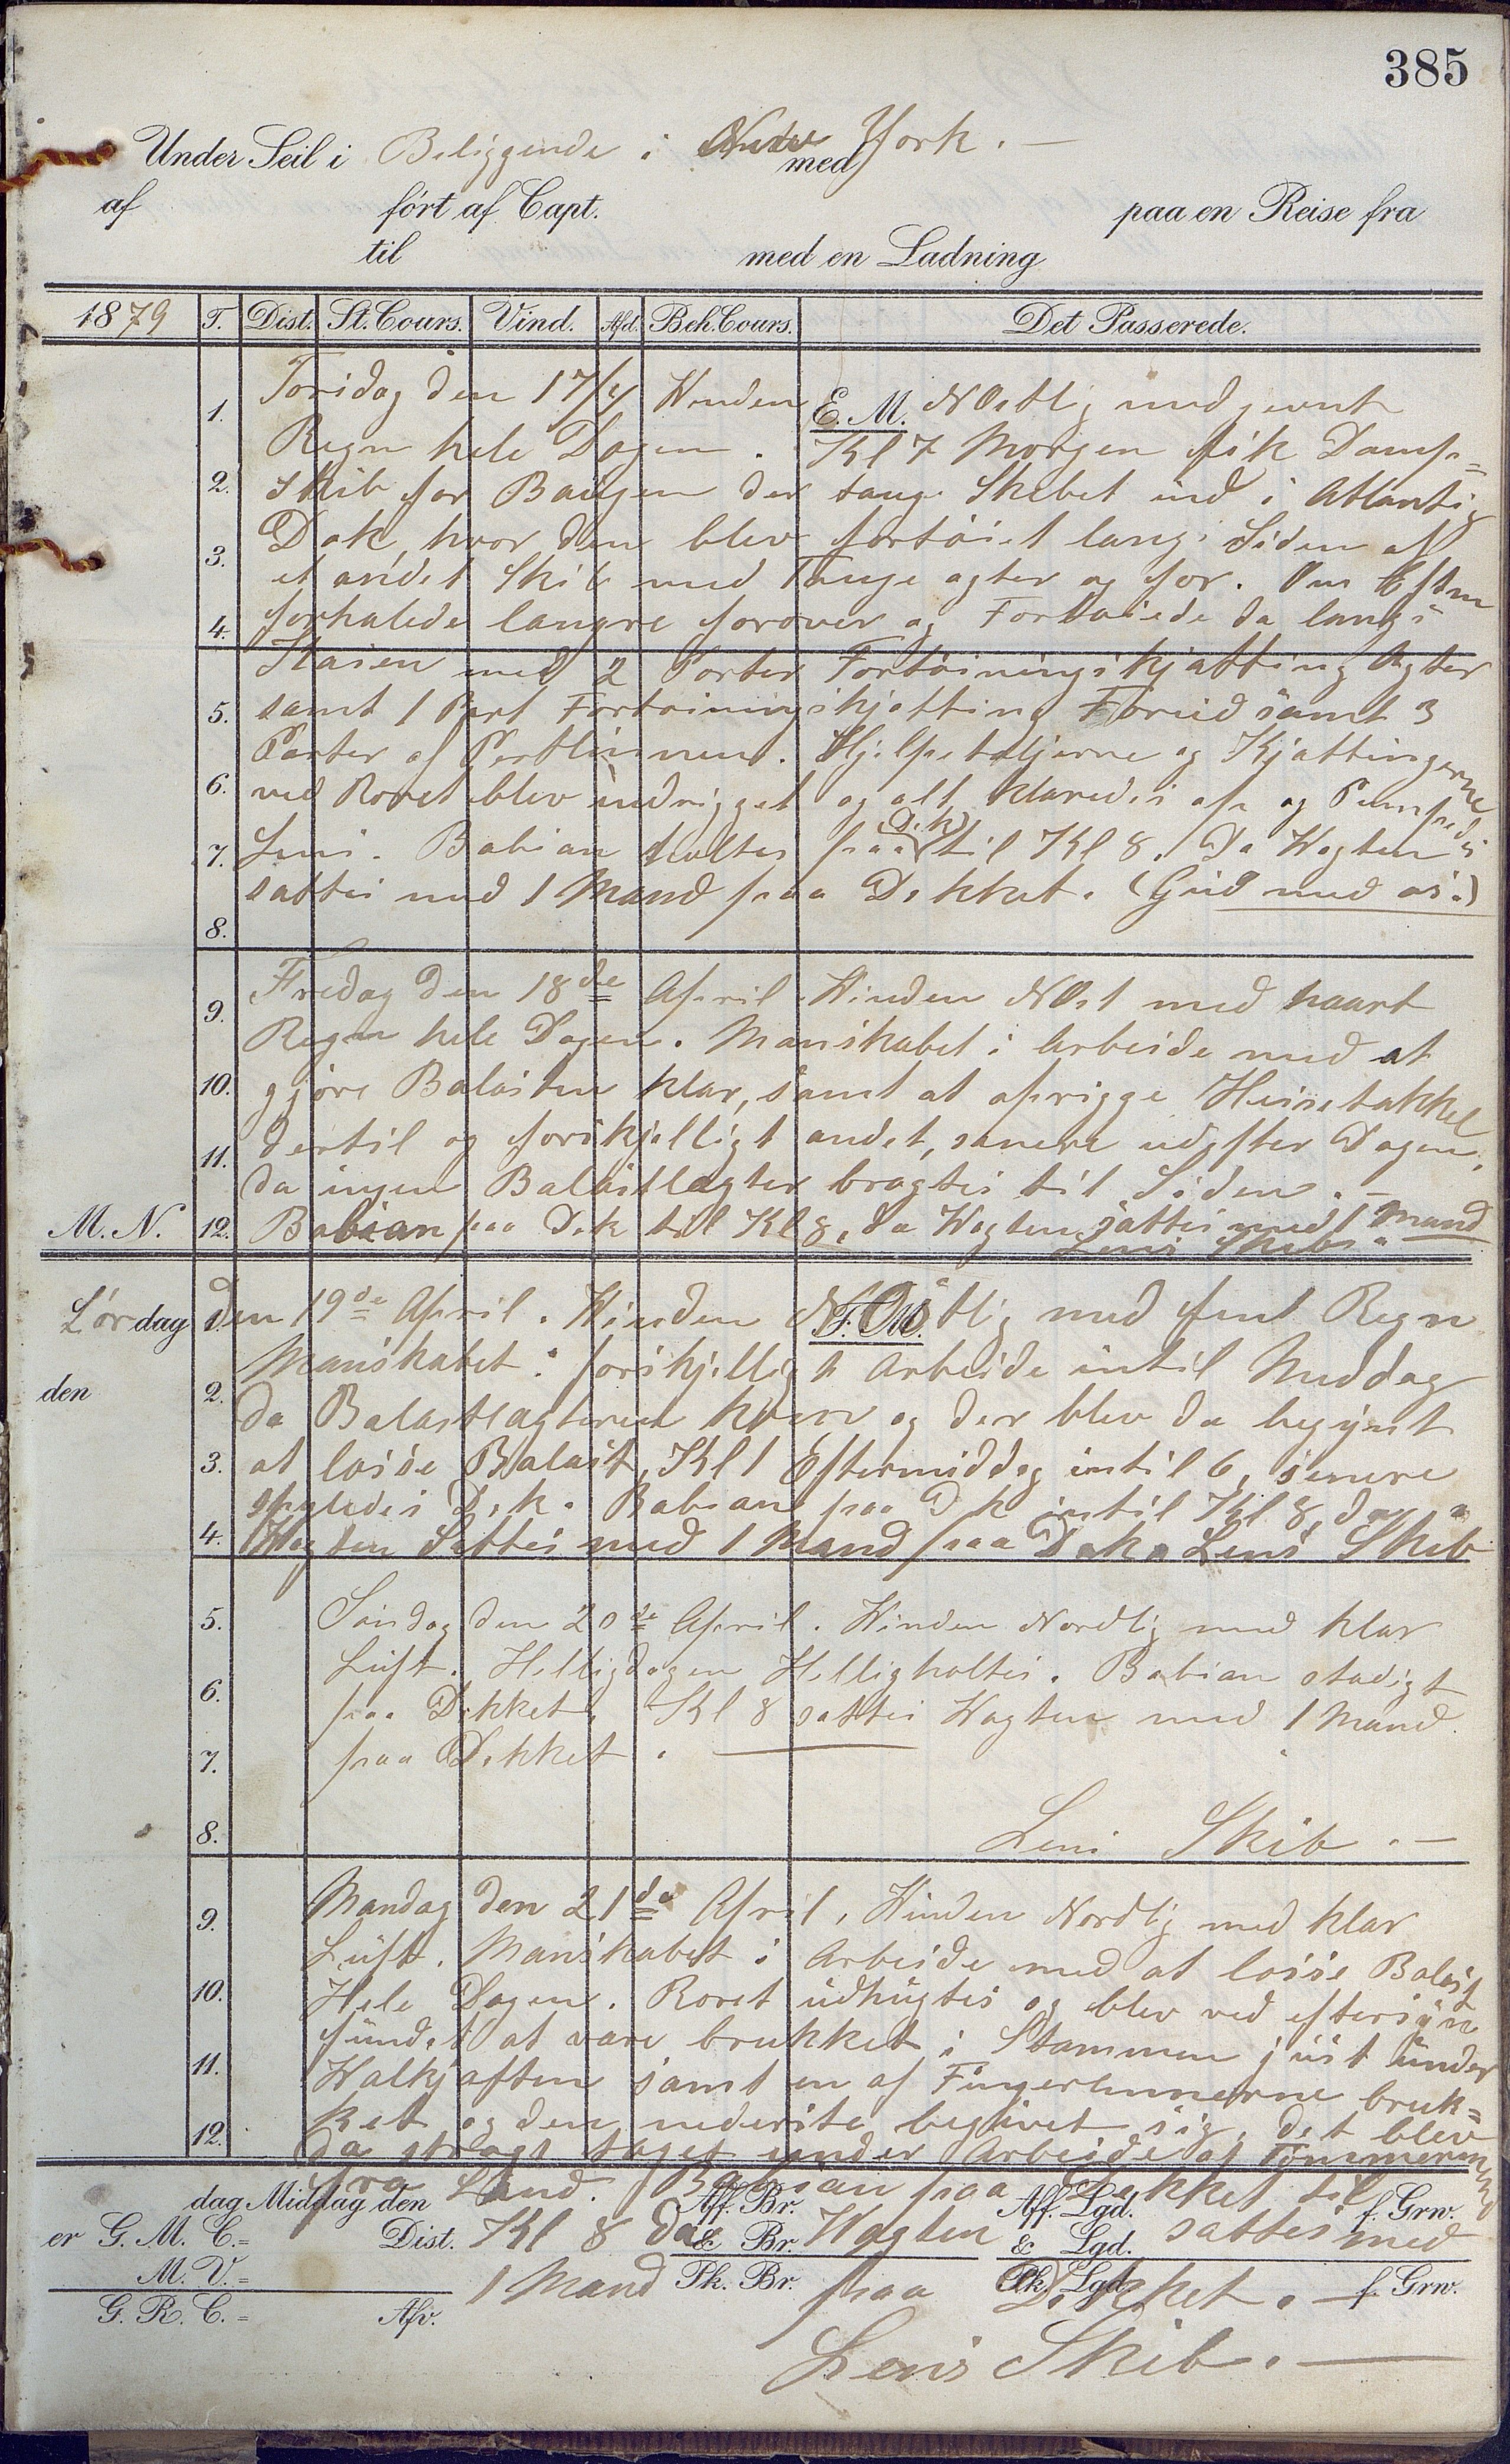 385
Under Seil i Beliggende i New York. —
med
af ført af Capt. paa en Reise fra
til med en Ladning
1879 T. Dist. St. Cours. Vind. Afd. Beh. Cours. Det Passerede.
E. M.
1. Torsdag den 17/4 Winden NOstlig med jevnt
Regn hele Dagen. Kl 7 Morgen fik Damp=
2. skib for Baugen der taug Skibet ind i Atlantig
3. Dok, hvor den blev fortöiet langs Siden af
et andet Skib med Tauge agter og for. Om Eftm
4. forhalede længre forover og Fortøiede da langs
Kaien med 2 Parter Fortöiningskjætting Agter
5. samt 1 Part Fortöiningskjætting Forud samt 3
Parter af Pertlinnen. Hjelpetaljerne og Kjættingerne
6. ved Roret blev nedrigget og alt klaredes op og Pumpedes
7. Lens. Babian holtes paa (Dek) til Kl 8. Da Wagten
sattes med 1 Mand paa Dekket. (Gud med os.)
8.
9. Fredag den 18de April. Winden NOst med haart
Regn hele Dagen. Manskabet i Arbeide med at
10. gjöre Balasten klar, samt at oprigge Heisetakkel
11. dertil og forskjelligt andet, senere udefter Dagen,
da ingen Balastlægter bragtes til Siden. —
M. N. 12. Babian paa Dek til Kl 8, da Wagten sattes med 1 Mand
Lens Skib.
F. M.
Lördag 1. den 19de April. Winden NOstlig med fint Regn
Manskabet i forskjelligt Arbeide intil Middag
den 2. da Balastlagteren kom og der blev da begynt
3. at losse Balast, Kl 1 Eftermiddag intil 6, senere
spyledes Dek. Babian paa Dek intil Kl 8, da
4. Wagten Sattes med 1 Mand paa Dek. Lens Skib
5. Söndag den 20de April. Winden Nordlig med klar
Luft. Helligdagen Helligholtes. Babian stadigt
6. paa Dekket. Kl 8 sattes Wagten med 1 Mand.
7. paa Dekket. —
8. Lens Skib. —
9. Mandag den 21de April, Winden Nordlig med klar
Luft. Manskabet i Arbeide med at losse Balast
10. Hele Dagen. Roret udhugtes og blev ved eftersyn
fundet at være brukket i Stammen just under
11. Halkjæften samt en af Fingerlinnerne bruk=
12. ket og den nederste begivet sig, det blev
da strags taget under Arbeide af Tömmermænd
fra Land. Babian paa Dekket til
dag Middag den Aff. Br. Aff. Lgd. f. Grw.
er G. M. C. = Dist. Kl 8 da & Br. Wagten & Lgd. sattes med
M. V. = 1 Mand Pk. Br. paa Pk. Lgd. Dekket. — f. Grw.
G. R. C. = Afv.
Lens Skib. —